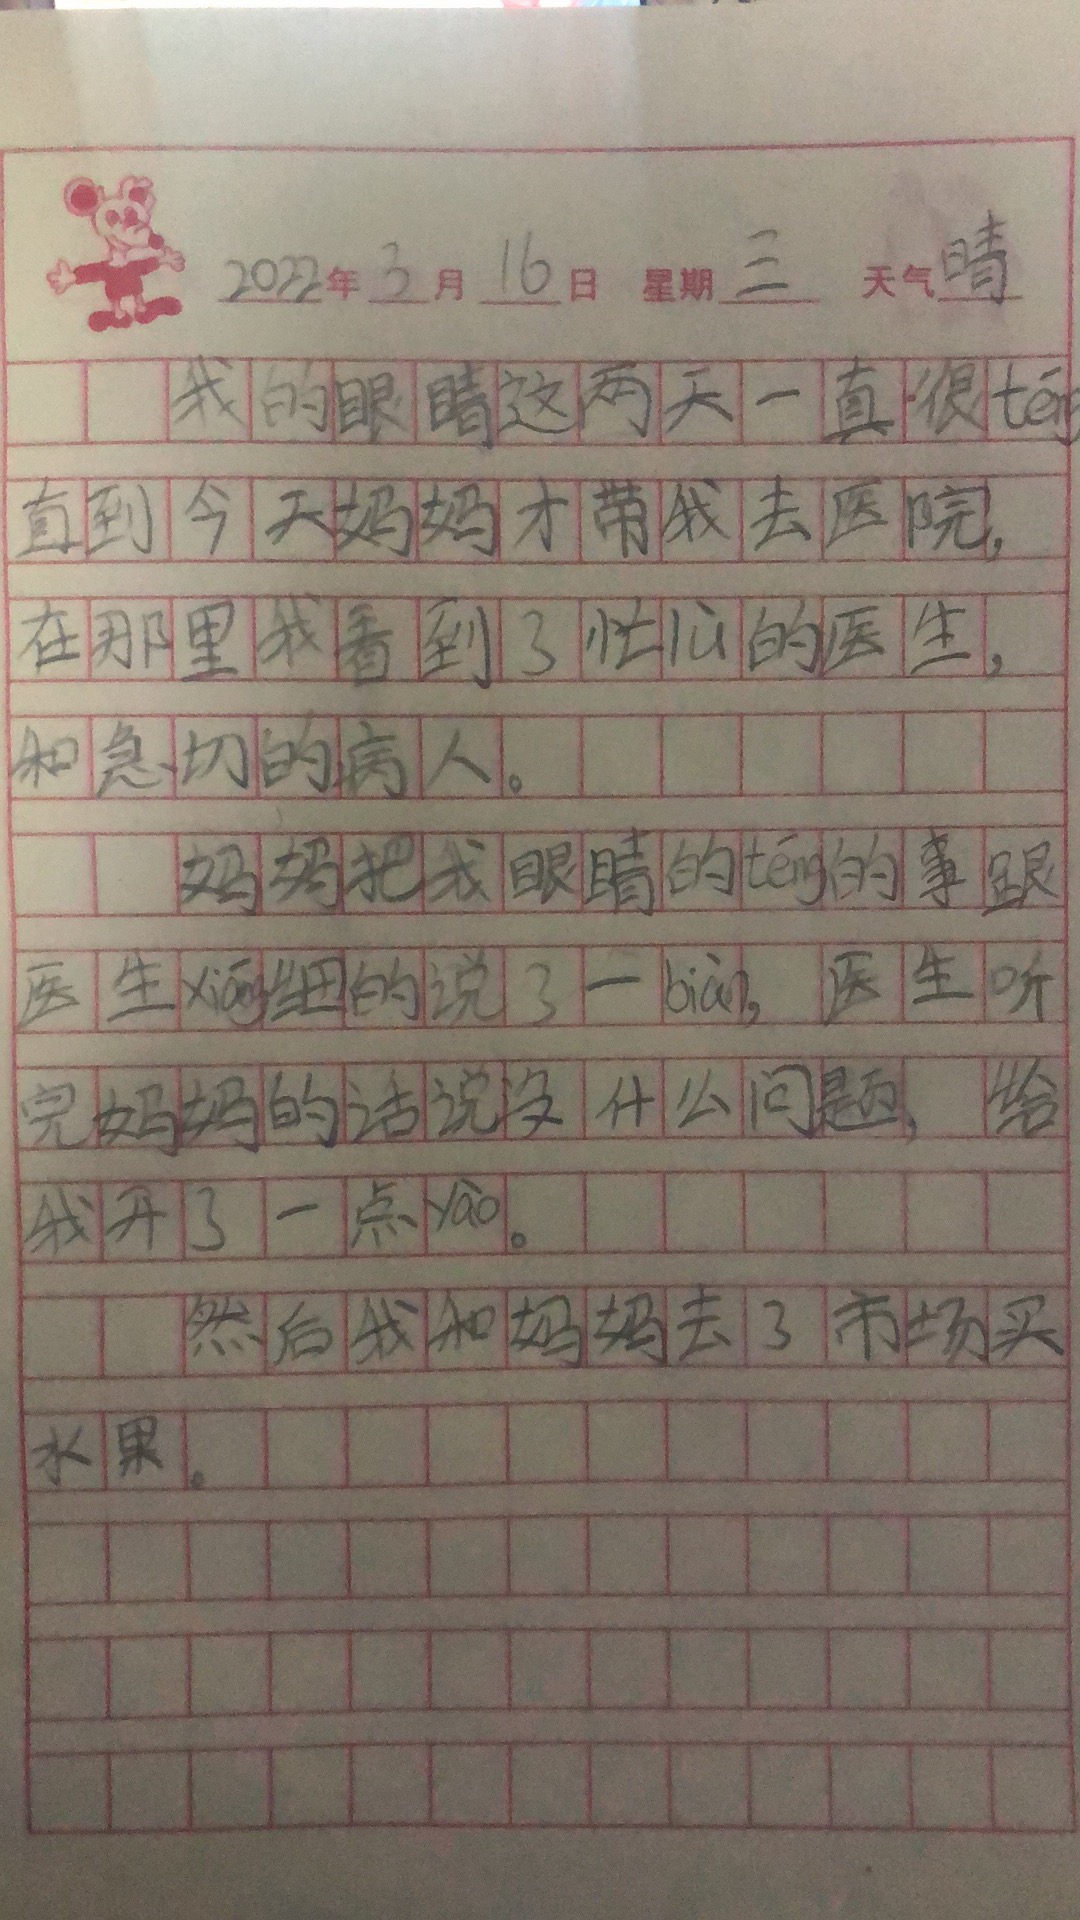 2022年3月16日 星期三 天气晴
我的眼睛这两天一直很téng
直到今天妈妈才带我去医院,
在那里我看到了忙lù的医生,
和急切的病人。
妈妈把我眼睛的téng的事跟
医生xiáng细的说了一biàn, 医生听
完妈妈的话说没什么问题, 给
我开了一点yào。
然后我和妈妈去了市场买
水果。